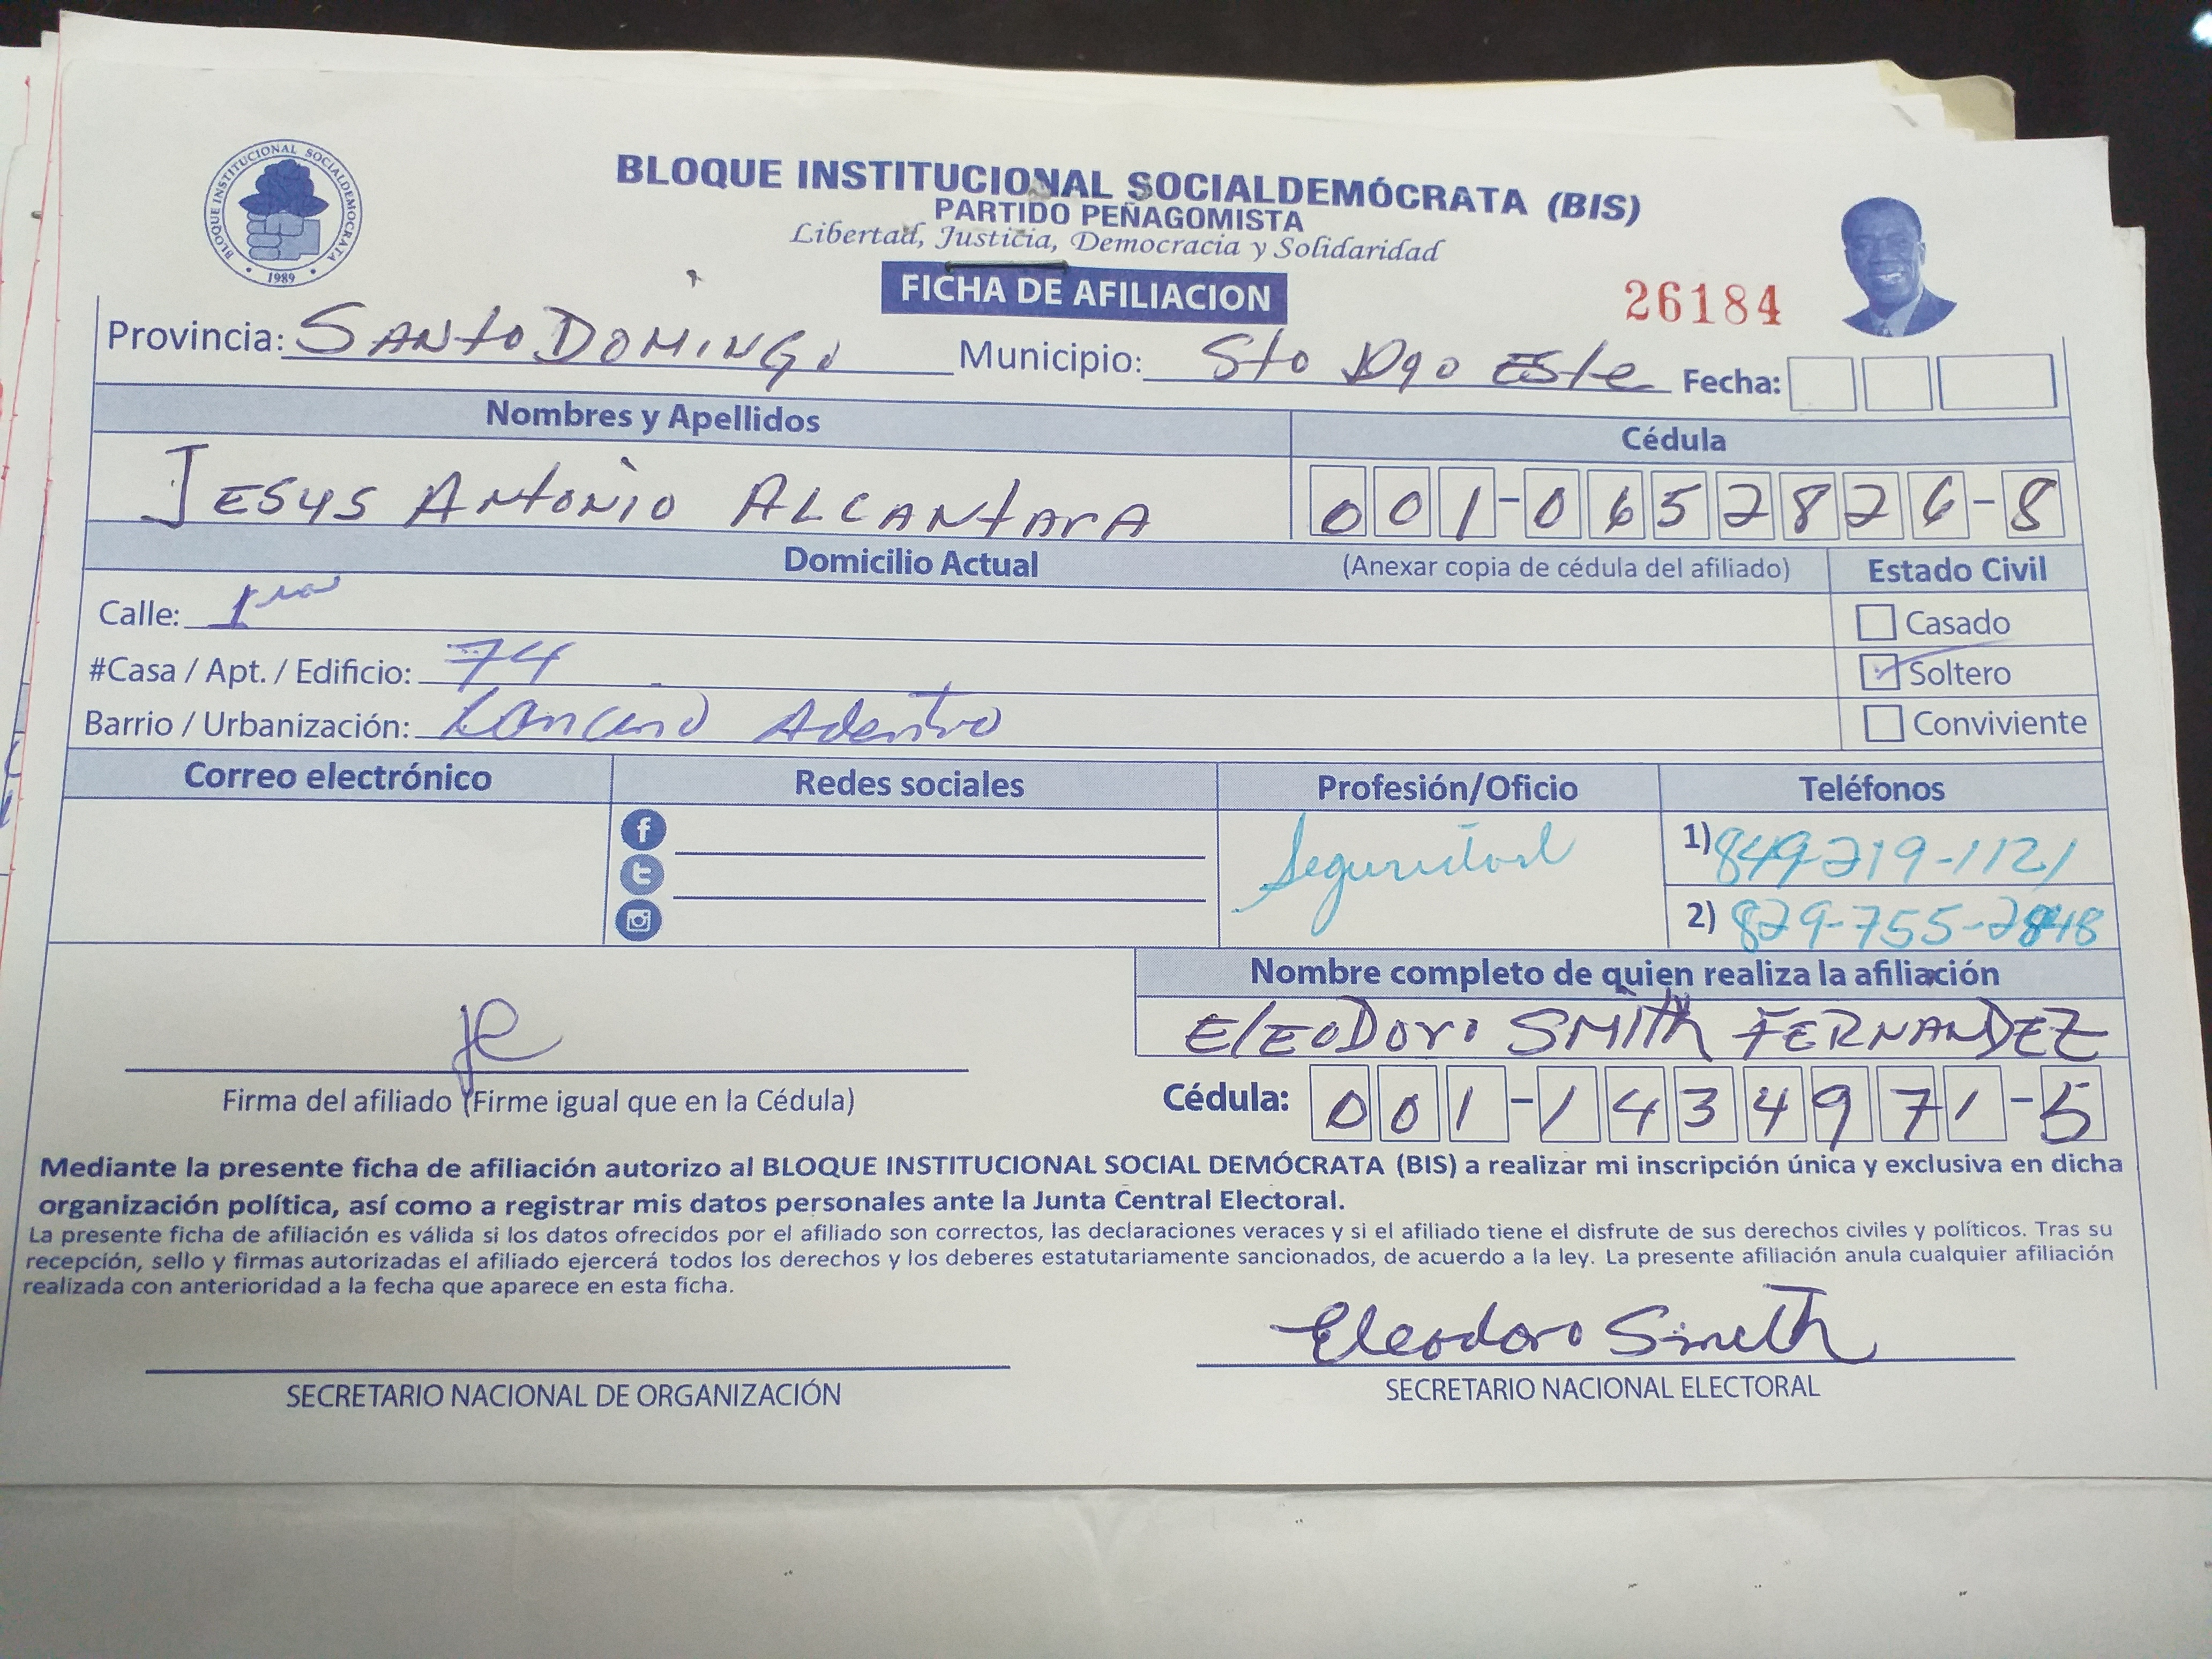 BLOQUE INSTITUCIONAL SOCIALDEMOCRATA
1989
BLOQUE INSTITUCIONAL SOCIALDEMÓCRATA (BIS)
PARTIDO PEÑAGOMISTA
Libertad, Justicia, Democracia y Solidaridad
FICHA DE AFILIACION
26184
Provincia: SANTO DOMINGO Municipio: Sto Dgo Este Fecha:
Nombres y Apellidos Cédula
JESUS ANTONIO ALCANTARA 001-0652826-8
Domicilio Actual (Anexar copia de cédula del afiliado) Estado Civil
Calle: 1ra Casado
#Casa / Apt. / Edificio: 74 Soltero
Barrio / Urbanización: Adentro Conviviente
Correo electrónico Redes sociales Profesión/Oficio Teléfonos
Seguridad 1) 849-219-1121
2) 829-755-2848
Nombre completo de quien realiza la afiliación
ELEODORO SMITH FERNANDEZ
Firma del afiliado (Firme igual que en la Cédula) Cédula: 001-1434971-5
Mediante la presente ficha de afiliación autorizo al BLOQUE INSTITUCIONAL SOCIAL DEMÓCRATA (BIS) a realizar mi inscripción única y exclusiva en dicha
organización política, así como a registrar mis datos personales ante la Junta Central Electoral.
La presente ficha de afiliación es válida si los datos ofrecidos por el afiliado son correctos, las declaraciones veraces y si el afiliado tiene el disfrute de sus derechos civiles y políticos. Tras su
recepción, sello y firmas autorizadas el afiliado ejercerá todos los derechos y los deberes estatutariamente sancionados, de acuerdo a la ley. La presente afiliación anula cualquier afiliación
realizada con anterioridad a la fecha que aparece en esta ficha.
Eleodoro Smith
SECRETARIO NACIONAL DE ORGANIZACIÓN SECRETARIO NACIONAL ELECTORAL